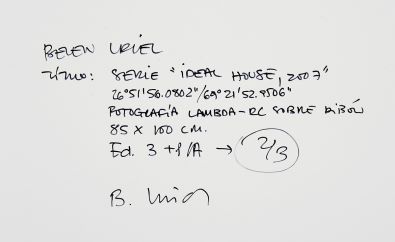 BELEN URIEL
TÍTULO: SERIE "IDEAL HOUSE, 2007"
26°51'56.0802"/69°21'52.9506"
FOTOGRAFÍA LAMBDA-RC SOBRE DIBÓN
85 X 100 CM.
Ed. 3 + 1/A → 2/3
B. Uriel